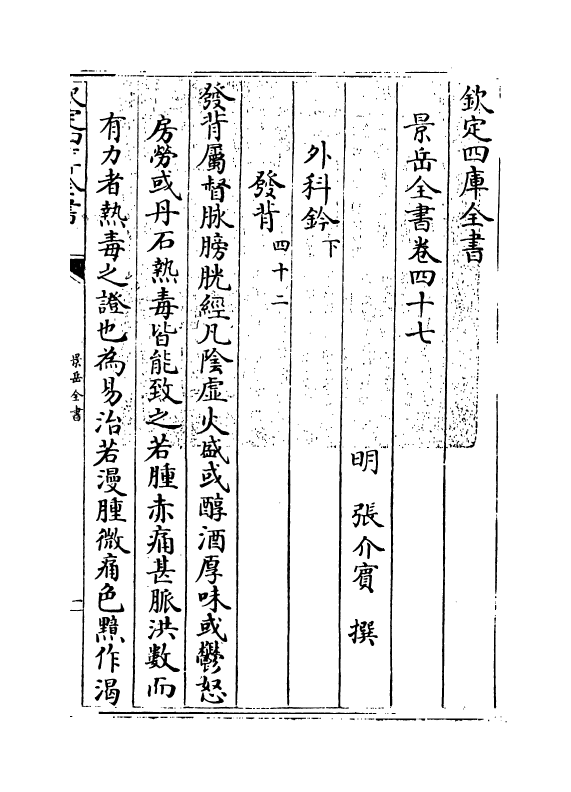 欽定四庫全書
景岳全書卷四十七
明 張介賓 撰
外科鈐下
發背四十二
發背屬督脉膀胱經凡陰虛火盛或醇酒厚味或鬱怒
房勞或丹石熱毒皆能致之若腫赤痛甚脈洪數而
有力者熱毒之證也為易治若漫腫微痛色黯作渴
欽定四庫全書
景岳全書